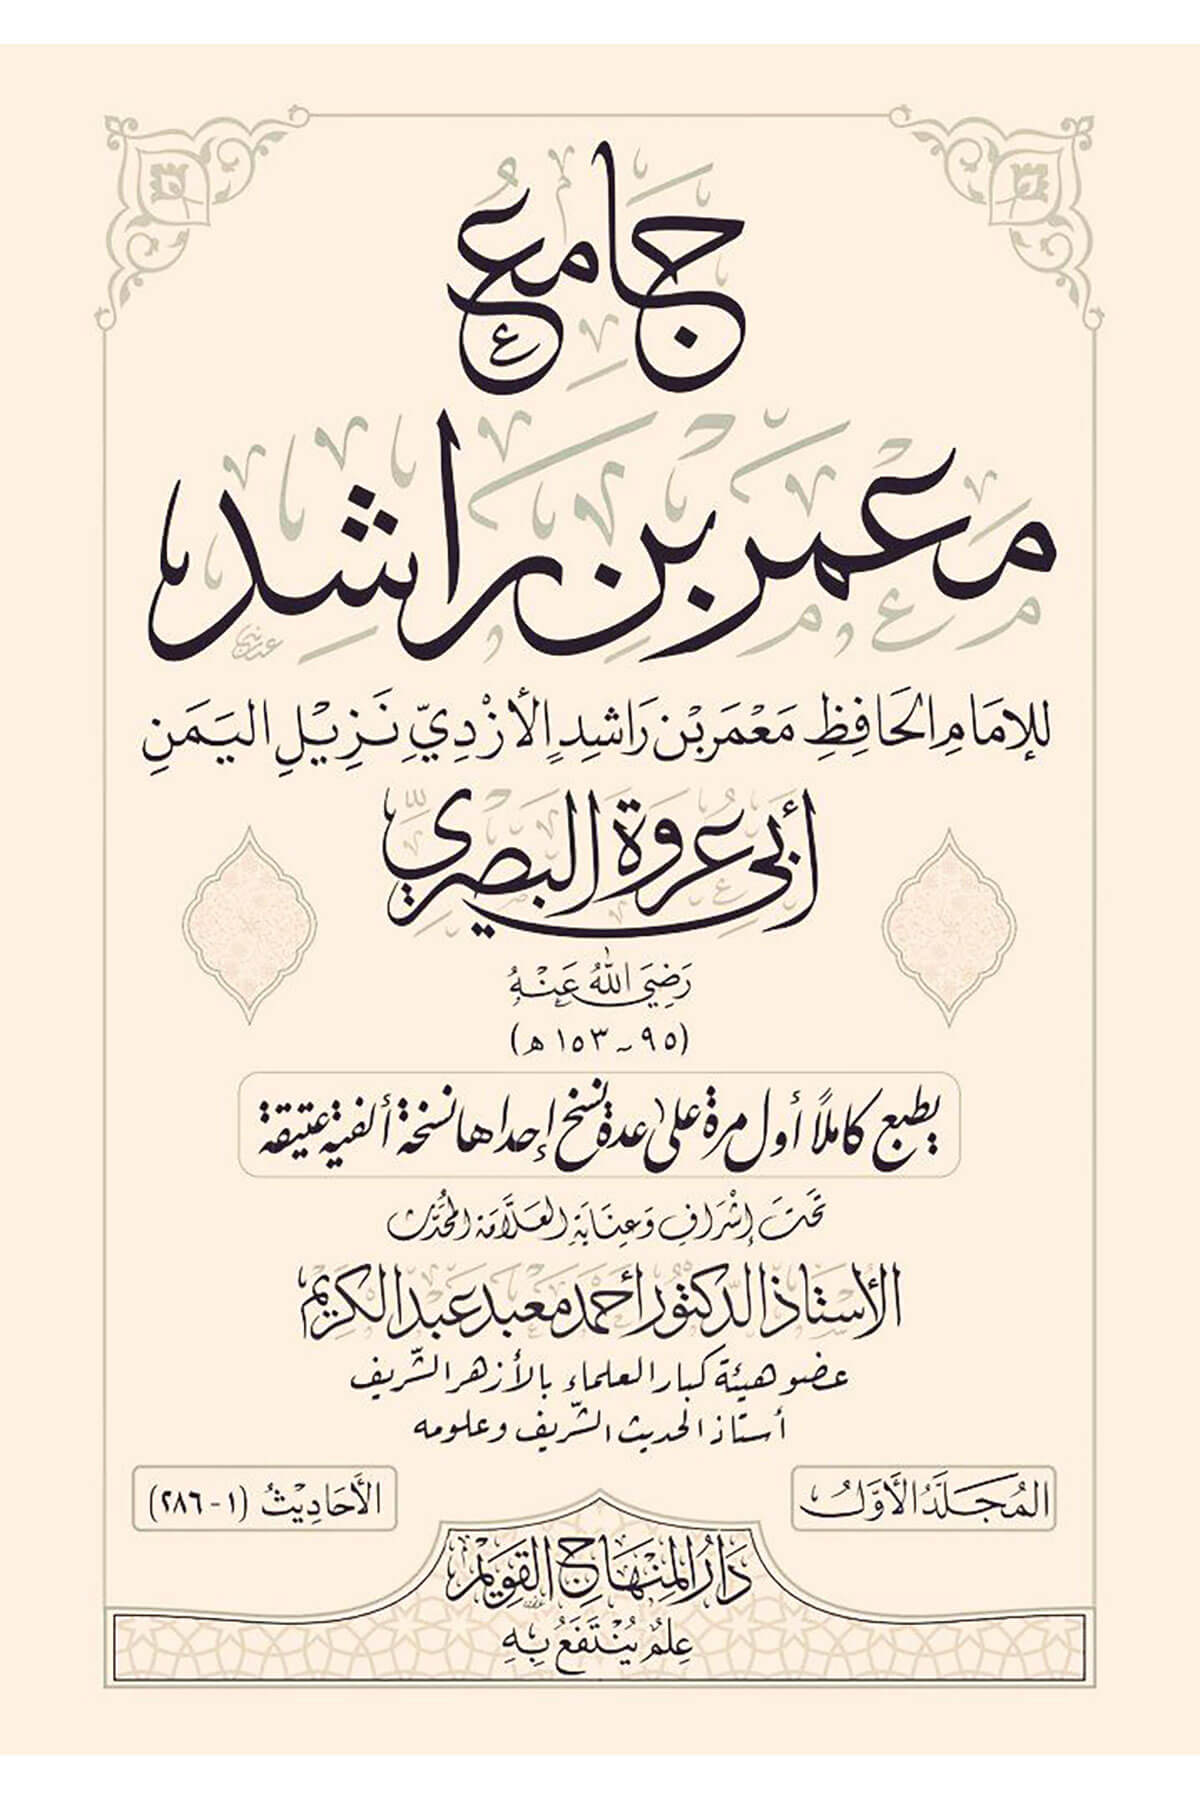 جامع
معمر بن راشد
للإمَامِ الحَافِظِ مَعْمَر بْن رَاشِدٍ الأزْدِيِّ نَزِيْلِ اليَمَنِ
أبي عروة البصري
رَضِيَ اللهُ عَنْهُ
(٩٥ ~ ١٥٣ هـ)
يطبع كاملاً أول مرة على عدة نسخ إحداها نسخة ألفية عتيقة
تَحْتَ إشْرَافِ وَعِنَايَةِ العَلَّامَة المُحَدِّث
الأستاذ الدكتور أحمد معبد عبد الكريم
عضو هيئة كبار العلماء بالأزهر الشّريف
أستاذ الحديث الشّريف وعلومه
المُجَلَّدُ الأَوَّلُ
الأَحَادِيْثُ (١ - ٢٨٦)
دَارُ المِنْهَاجِ القَوِيْمِ
عِلمٌ يُنْتَفَعُ بِهِ